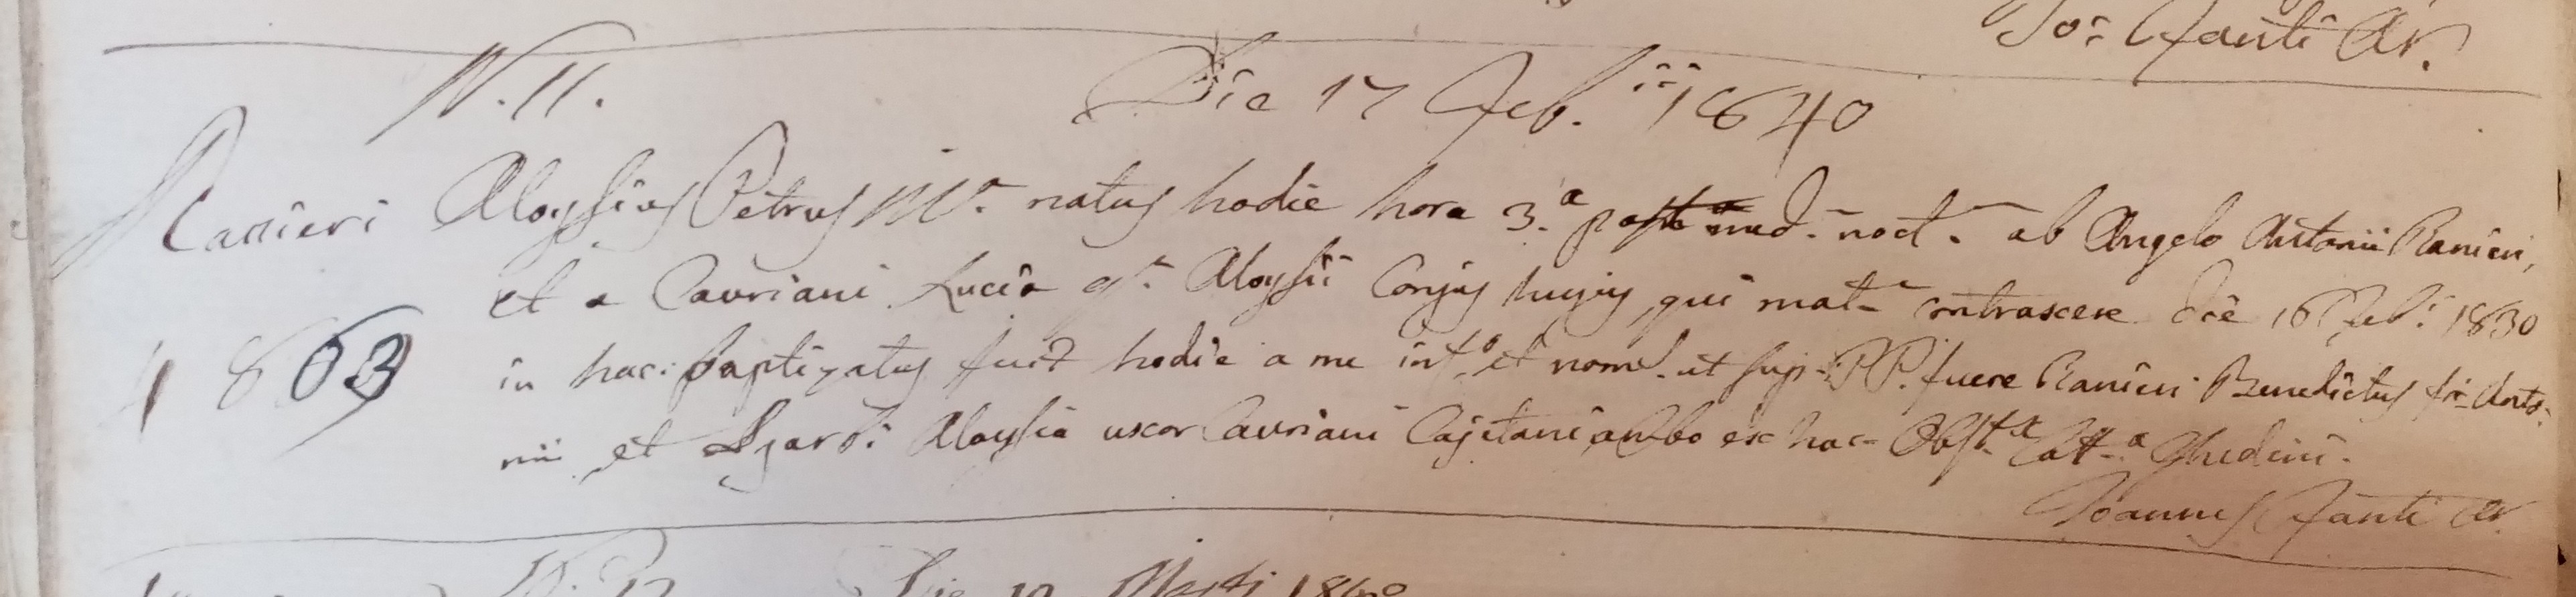 Jo: Fanti Ar.
N. 11. Die 17 Feb.ii 1840
Ranieri Aloysius Petrus Ma. natus hodie hora 3.a post med. noct. ab Angelo Antonii Ranieri,
et a Cavriani Lucia qm. Aloysii Conjug hujus, qui mat. contraxere die 16 Feb.i 1830
1863 in hac: baptizatus fuit hodie a me inf.o et nom. ut sup. PP. fuere Ranieri Benedictus fr. Anto:
nii et Aloysia uxor Cavriani Cajetani ambo ex hac Obst.x Catt.a Ghedini.
Joannes Fanti Ar.
N. 12 Die 12 Martii 1840